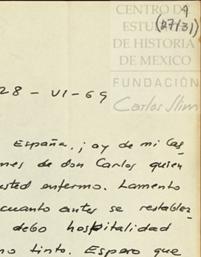 CENTRO DE
ESTUDIOS
DE HISTORIA
DE MEXICO
FUNDACIÓN
Carlos Slim
9
(27/31)
28 - VI - 69
España, ¡ay de mi Cas
nes de don Carlos quien
usted enfermo. Lamento
cuanto antes se restablez
debo hospitalidad
no tinto. Espero que